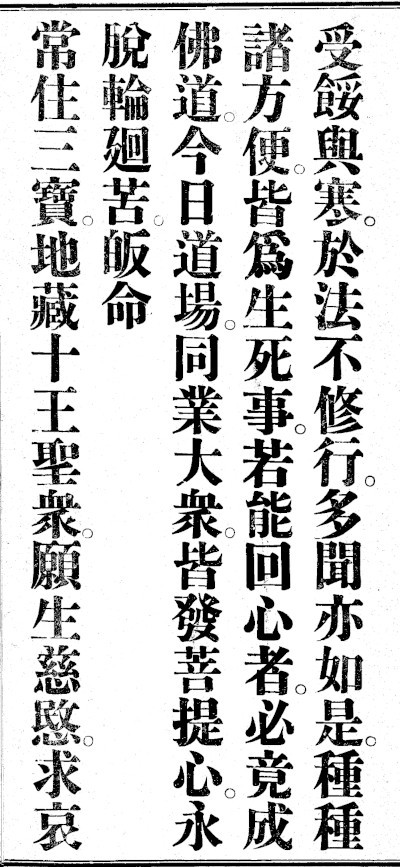 受餒與寒。於法不修行。多聞亦如是。種種
諸方便。皆爲生死事。若能回心者。必竟成
佛道。今日道場。同業大衆。皆發菩提心。永
脫輪廻苦。皈命
常住三寶。地藏十王聖衆。願生慈愍。求哀